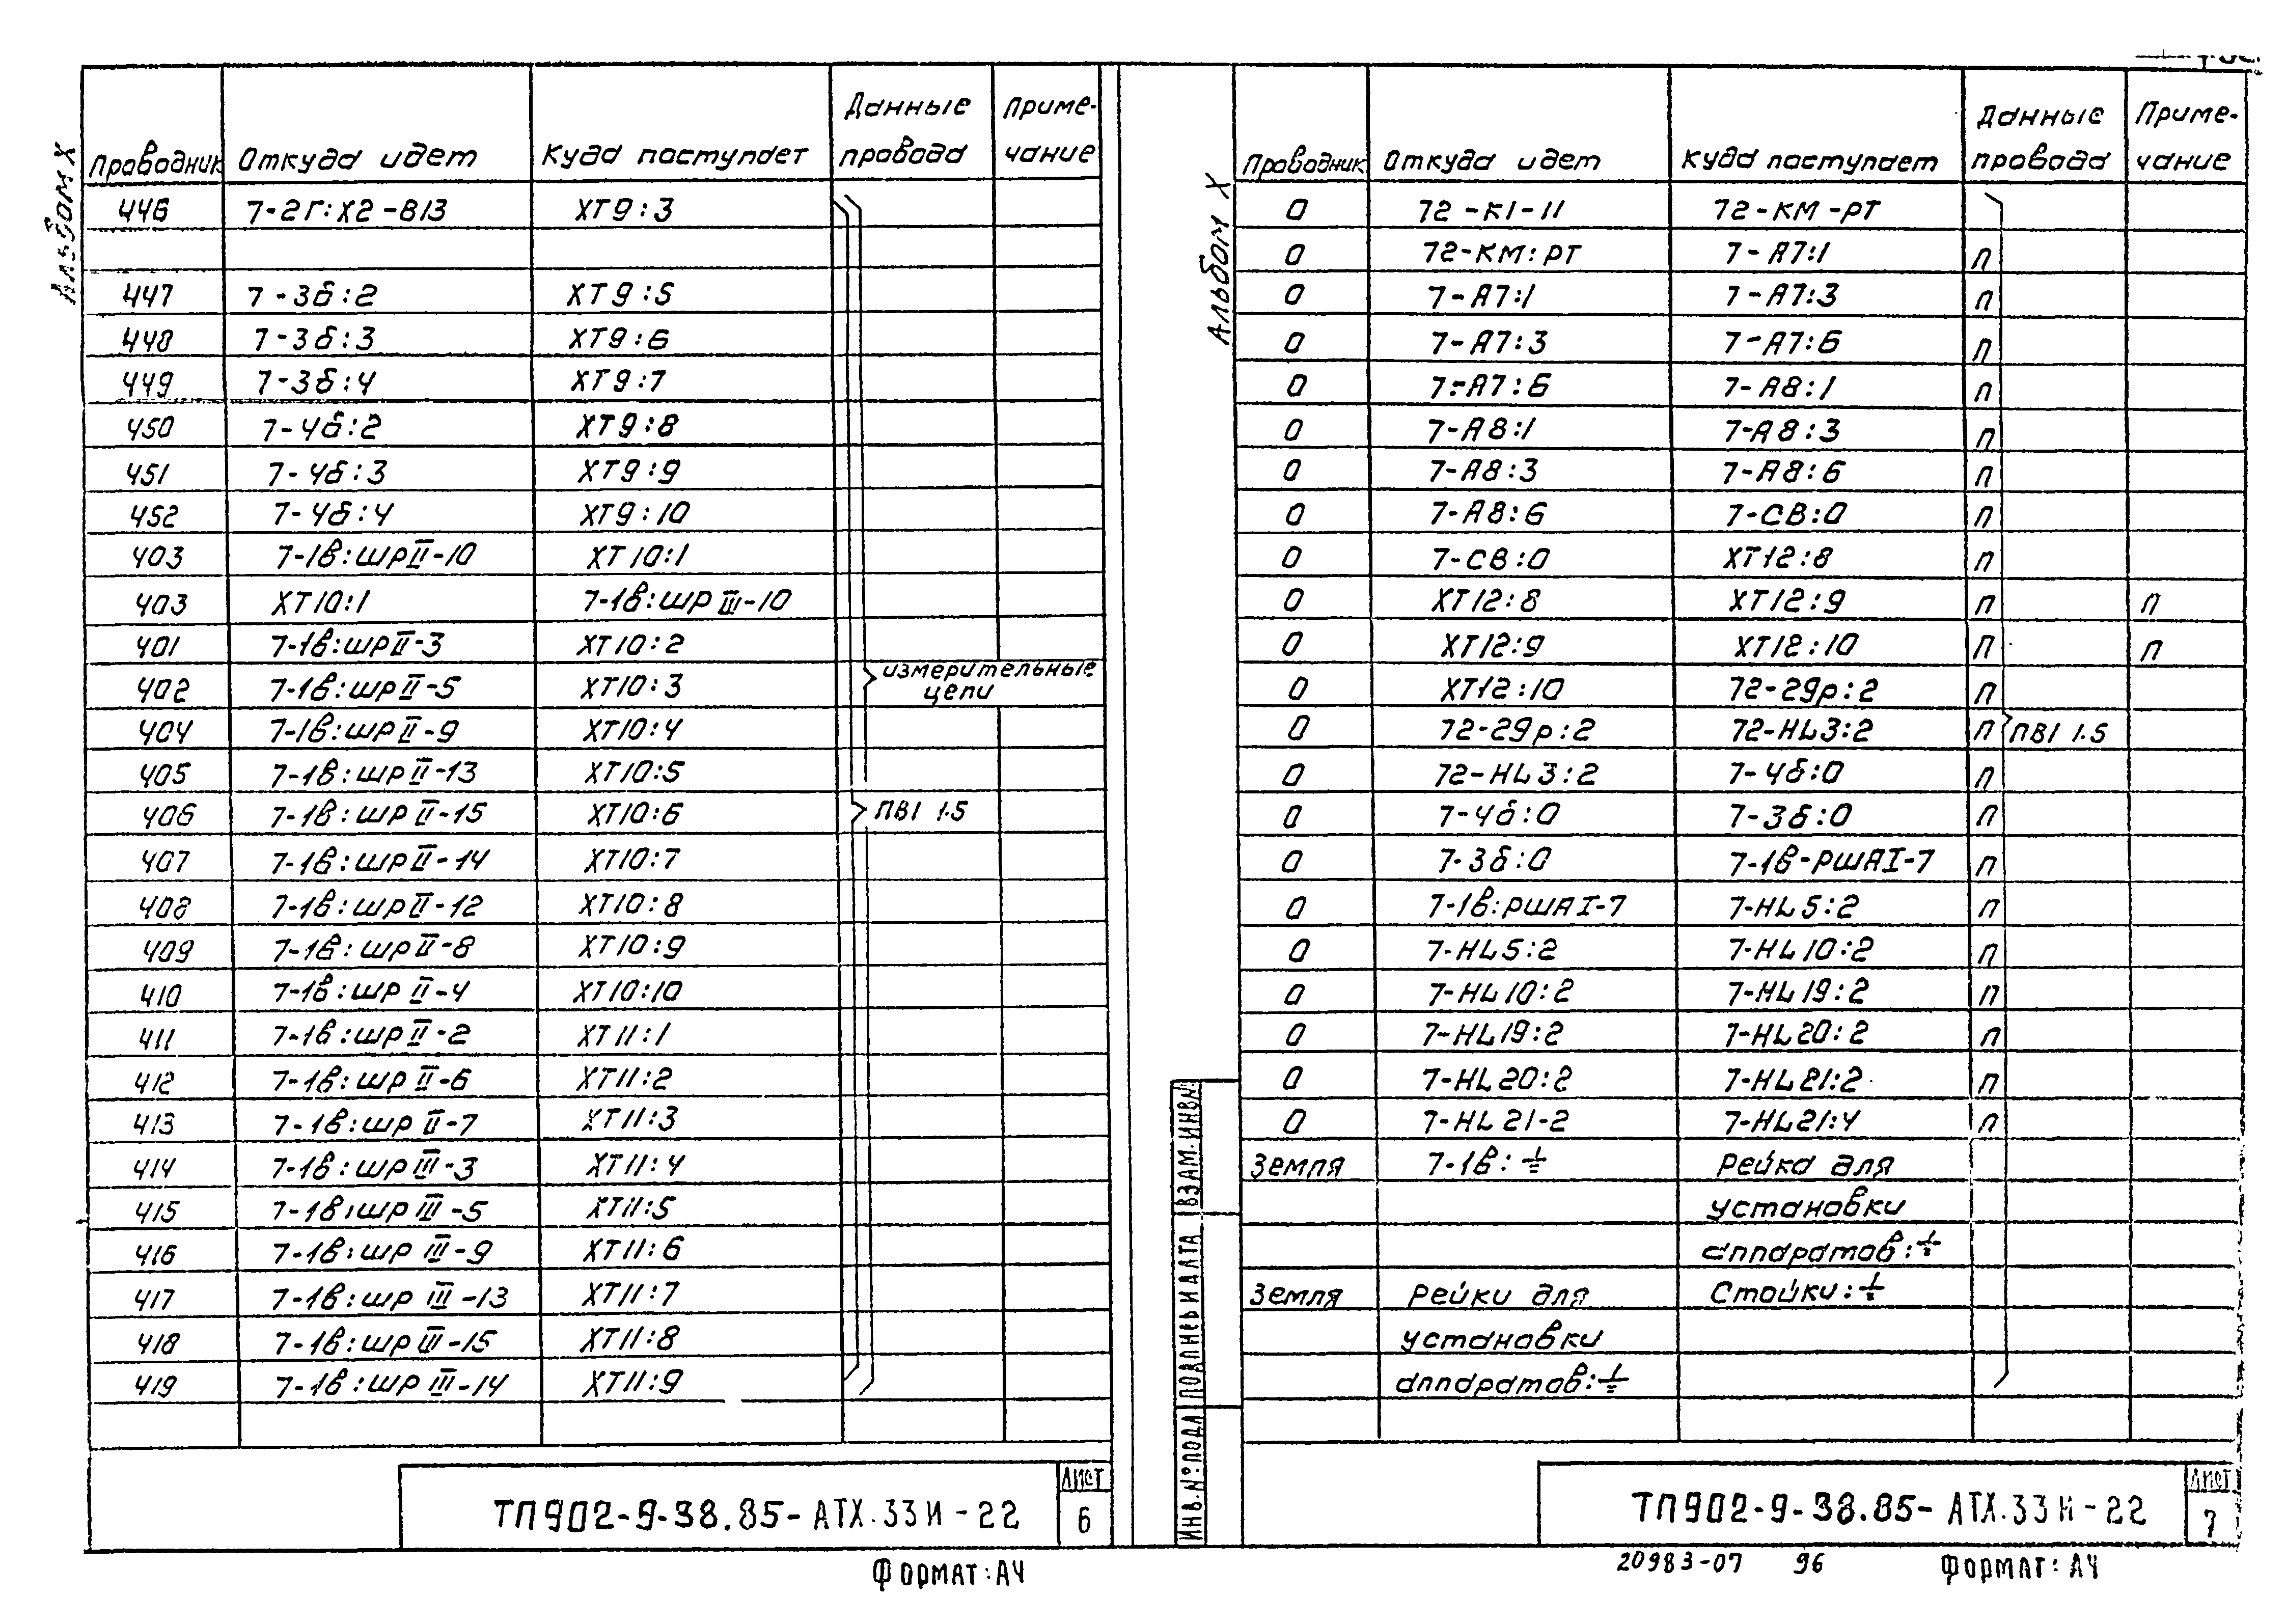 Альбом X
Проводник Откуда идет Куда поступает Данные провода Примечание
446 7-2Г:Х2-В13 ХТ9:3
447 7-3б:2 ХТ9:5
448 7-3б:3 ХТ9:6
449 7-3б:4 ХТ9:7
450 7-4б:2 ХТ9:8
451 7-4б:3 ХТ9:9
452 7-4б:4 ХТ9:10
403 7-1в:шрII-10 ХТ10:1
403 ХТ10:1 7-1в:шрIII-10
401 7-1в:шрII-3 ХТ10:2
402 7-1в:шрII-5 ХТ10:3 измерительные цепи
404 7-1в:шрII-9 ХТ10:4
405 7-1в:шрII-13 ХТ10:5
406 7-1в:шрII-15 ХТ10:6 ПВ1 1.5
407 7-1в:шрII-14 ХТ10:7
408 7-1в:шрII-12 ХТ10:8
409 7-1в:шрII-8 ХТ10:9
410 7-1в:шрII-4 ХТ10:10
411 7-1в:шрII-2 ХТ11:1
412 7-1в:шрII-6 ХТ11:2
413 7-1в:шрII-7 ХТ11:3
414 7-1в:шрIII-3 ХТ11:4
415 7-1в:шрIII-5 ХТ11:5
416 7-1в:шрIII-9 ХТ11:6
417 7-1в:шрIII-13 ХТ11:7
418 7-1в:шрIII-15 ХТ11:8
419 7-1в:шрIII-14 ХТ11:9
ТП902-9-38.85-АТХ.33И-22
Лист
6
Формат:А4
Альбом X
Проводник Откуда идет Куда поступает Данные провода Примечание
0 72-К1-11 72-КМ-РТ
0 72-КМ:РТ 7-А7:1 п
0 7-А7:1 7-А7:3 п
0 7-А7:3 7-А7:6 п
0 7-А7:6 7-А8:1 п
0 7-А8:1 7-А8:3 п
0 7-А8:3 7-А8:6 п
0 7-А8:6 7-СВ:0 п
0 7-СВ:0 ХТ12:8 п
0 ХТ12:8 ХТ12:9 п п
0 ХТ12:9 ХТ12:10 п п
0 ХТ12:10 72-29р:2 п
0 72-29р:2 72-HL3:2 п ПВ1 1.5
0 72-HL3:2 7-4б:0 п
0 7-4б:0 7-3б:0 п
0 7-3б:0 7-1в-РШАI-7 п
0 7-1в:РШАI-7 7-HL5:2 п
0 7-HL5:2 7-HL10:2 п
0 7-HL10:2 7-HL19:2 п
0 7-HL19:2 7-HL20:2 п
0 7-HL20:2 7-HL21:2 п
0 7-HL21-2 7-HL21:4 п
Земля 7-1в:⏚ Рейка для
установки
аппаратов:⏚
Земля Рейки для Стойки:⏚
установки
аппаратов:⏚
ВЗАМ.ИНВ№
ПОДПИСЬ И ДАТА
ИНВ.№ПОДЛ
ТП902-9-38.85-АТХ.33И-22
Лист
7
20983-07 96 Формат:А4